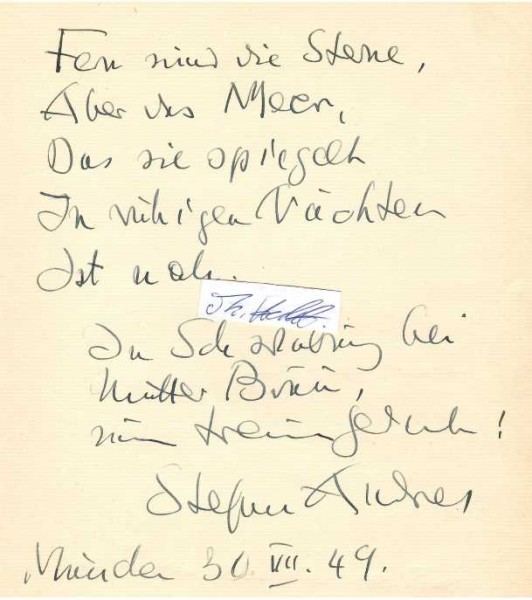 Fern sind die Sterne,
Aber das Meer,
Das sie spiegelt
In ruhigen Nächten
Ist nah.
In Schwabing bei
Mutter Bräu,
Stefan Andres
München 30. VII. 49.